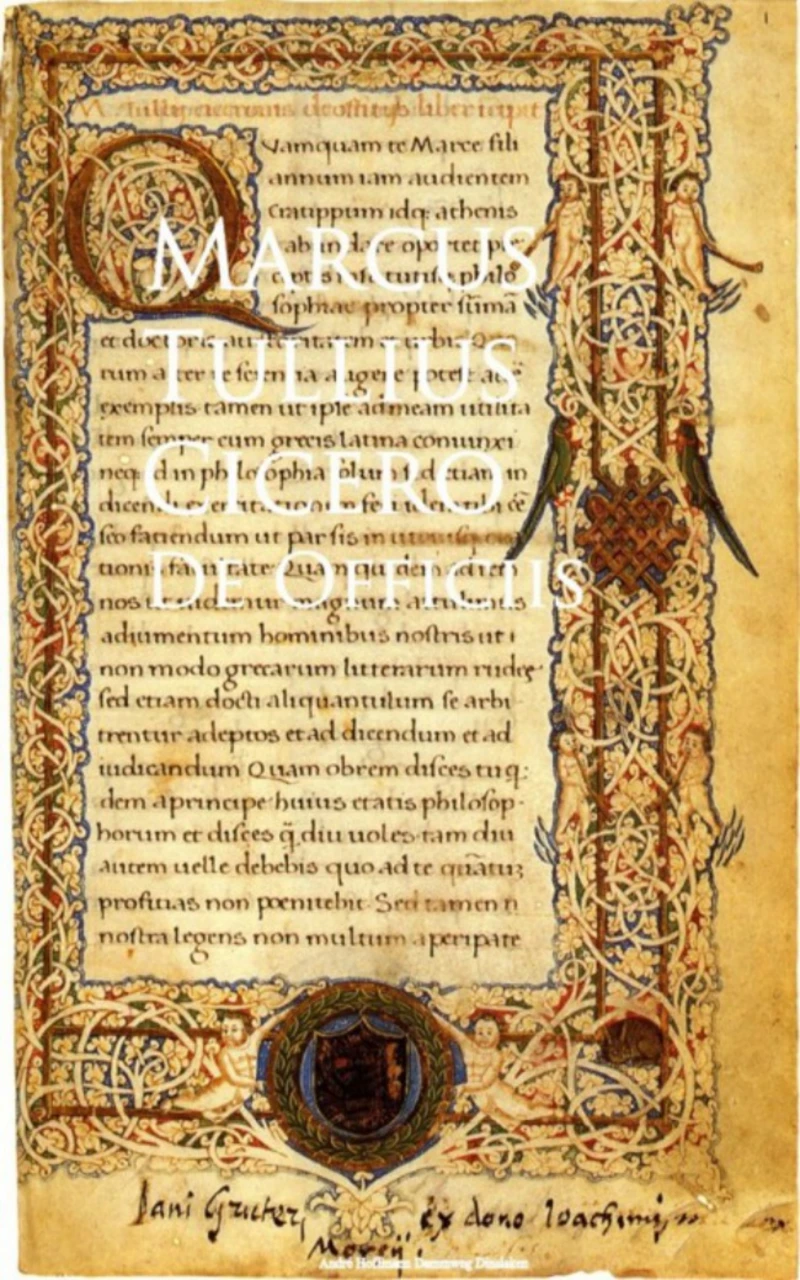 M. tullii ciceronis de officiis liber incipit
Quamquam te Marce fili
annum iam audientem
Cratippum idq; athenis
abundare oportet
philo
sophiae propter sūmā
et doctoris auctoritatem et urbis
augere potest
exemplis tamen ut ipse ad meam utilita
tem semper cum grecis latina coniunxi
neq; philosophia solum sed etiam in
dicendi
faciendum ut par sis in
tionis facultate Quam quidem ad rem
nos ut
adiumentum hominibus nostris ut
non modo grecarum litterarum rudes
sed etiam docti aliquantulum se arbi
trentur adeptos et ad dicendum et ad
iudicandum Quam obrem disces tu q:
dem a principe huius etatis philosop-
horum et disces q̄ diu uoles tam diu
autem uelle debebis quo ad te quātuʒ
proficias non poenitebit Sed tamen
nostra legens non multum a peripate
MARCUS
TULLIUS
CICERO
DE OFFICIIS
Iani Gruteri ex dono Ioachimi
André Hoffmann Dammweg Dinslaken